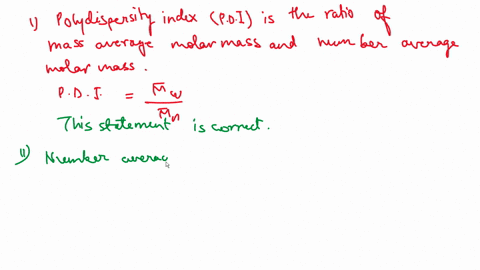 1) Polydispersity index (P.D.I) is the ratio of
mass average molar mass and number average
molar mass.
P.D.I. = M̅w / M̅n
This statement is correct.
11) Number averag